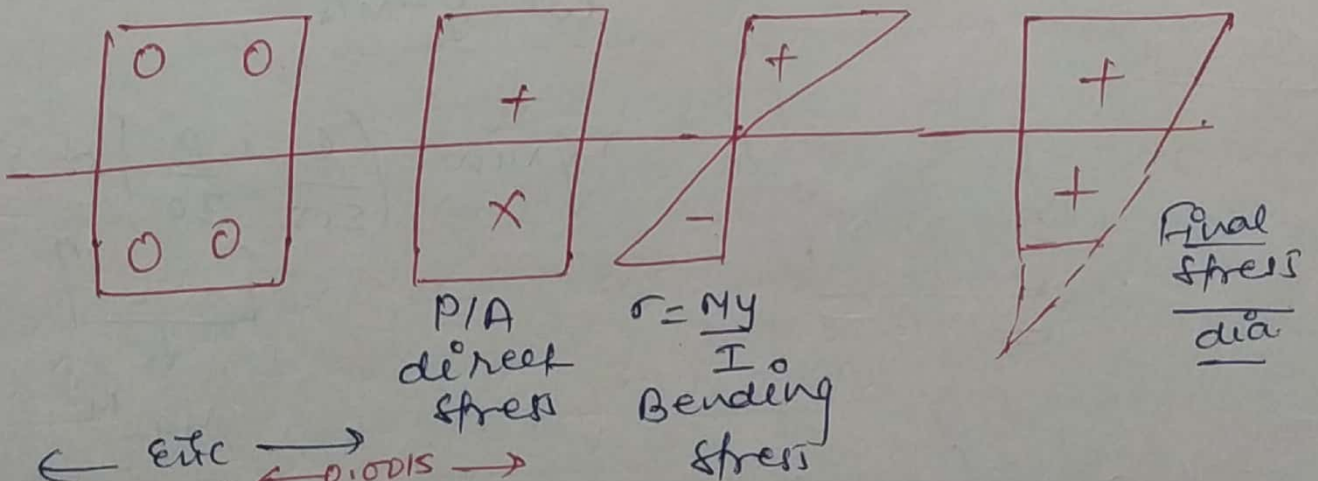 +
×
+
-
+
+
P/A
direct
stress
σ = My
I
Bending
stress
Final
stress
dia
← εuc →
← 0.0015 →